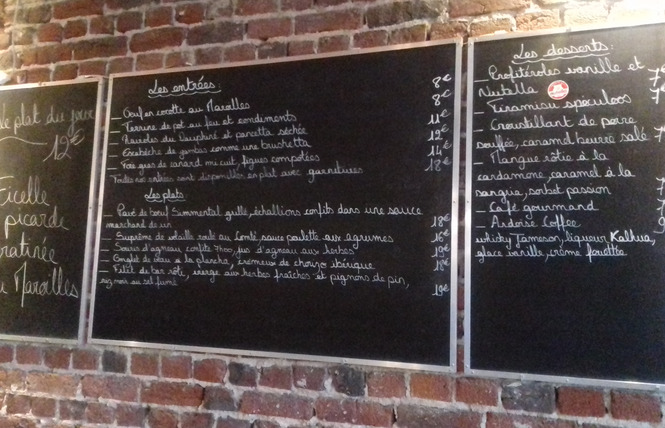 le plat du jour
12€
Ficelle
picarde
gratinée
au Maroilles
Les entrées:
_ Oeuf en cocotte au Maroilles 8€
_ Terrine de pot au feu et condiments 8€
_ Ravioles du Dauphiné et pancetta séchée 11€
_ Escabèche de gambas comme une bruschetta 12€
_ Foie gras de canard mi cuit, figues compotées
Toutes nos entrées sont disponibles en plat avec garnitures 18€
Les plats
_ Pavé de boeuf Simmental grillé, échallions confits dans une sauce
marchand de vin 18€
_ Suprême de volaille roulé au Comté, sauce poulette aux agrumes 16€
_ Souris d'agneau confite, jus d'agneau aux herbes 19€
_ Onglet de veau à la plancha, crémeux de chorizo ibérique 18€
_ Filet de bar rôti, vierge aux herbes fraîches et pignons de pin,
riz noir au sel fumé 19€
Les desserts:
_ Profitéroles vanille et
Nutella 7€
_ Tiramisu spéculoos 7€
_ Croustillant de poire
soufflée, caramel beurre salé 7
_ Mangue rôtie à la
cardamone, caramel à la
sangua, sorbet passion 7
_ Café gourmand 7
_ Ardoise Coffee
whisky Jameson, liqueur Kalhua,
glace vanille, crème fouettée